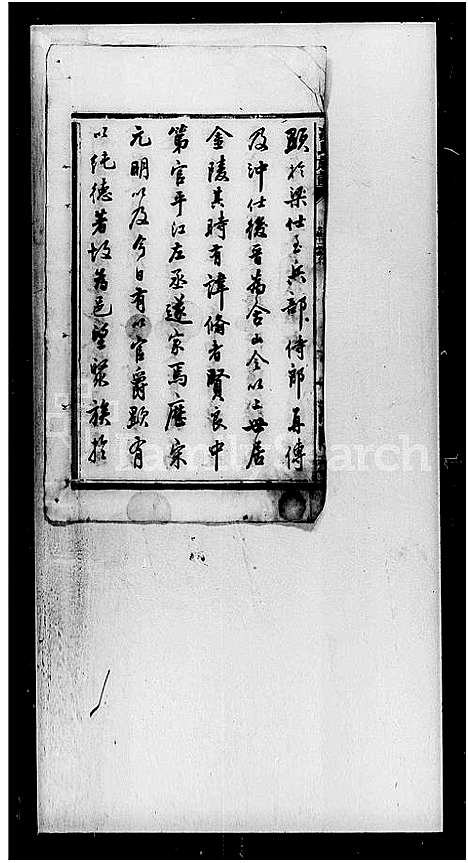 顕於梁仕至兵部侍郎再傳
及沖仕後晉為含山令以母居
金陵其時有諱脩者賢良中
第官平江左丞遂家焉歷宋
元明以及今日有以官爵顯有
以純德著故為邑望
族於
FamilySearch